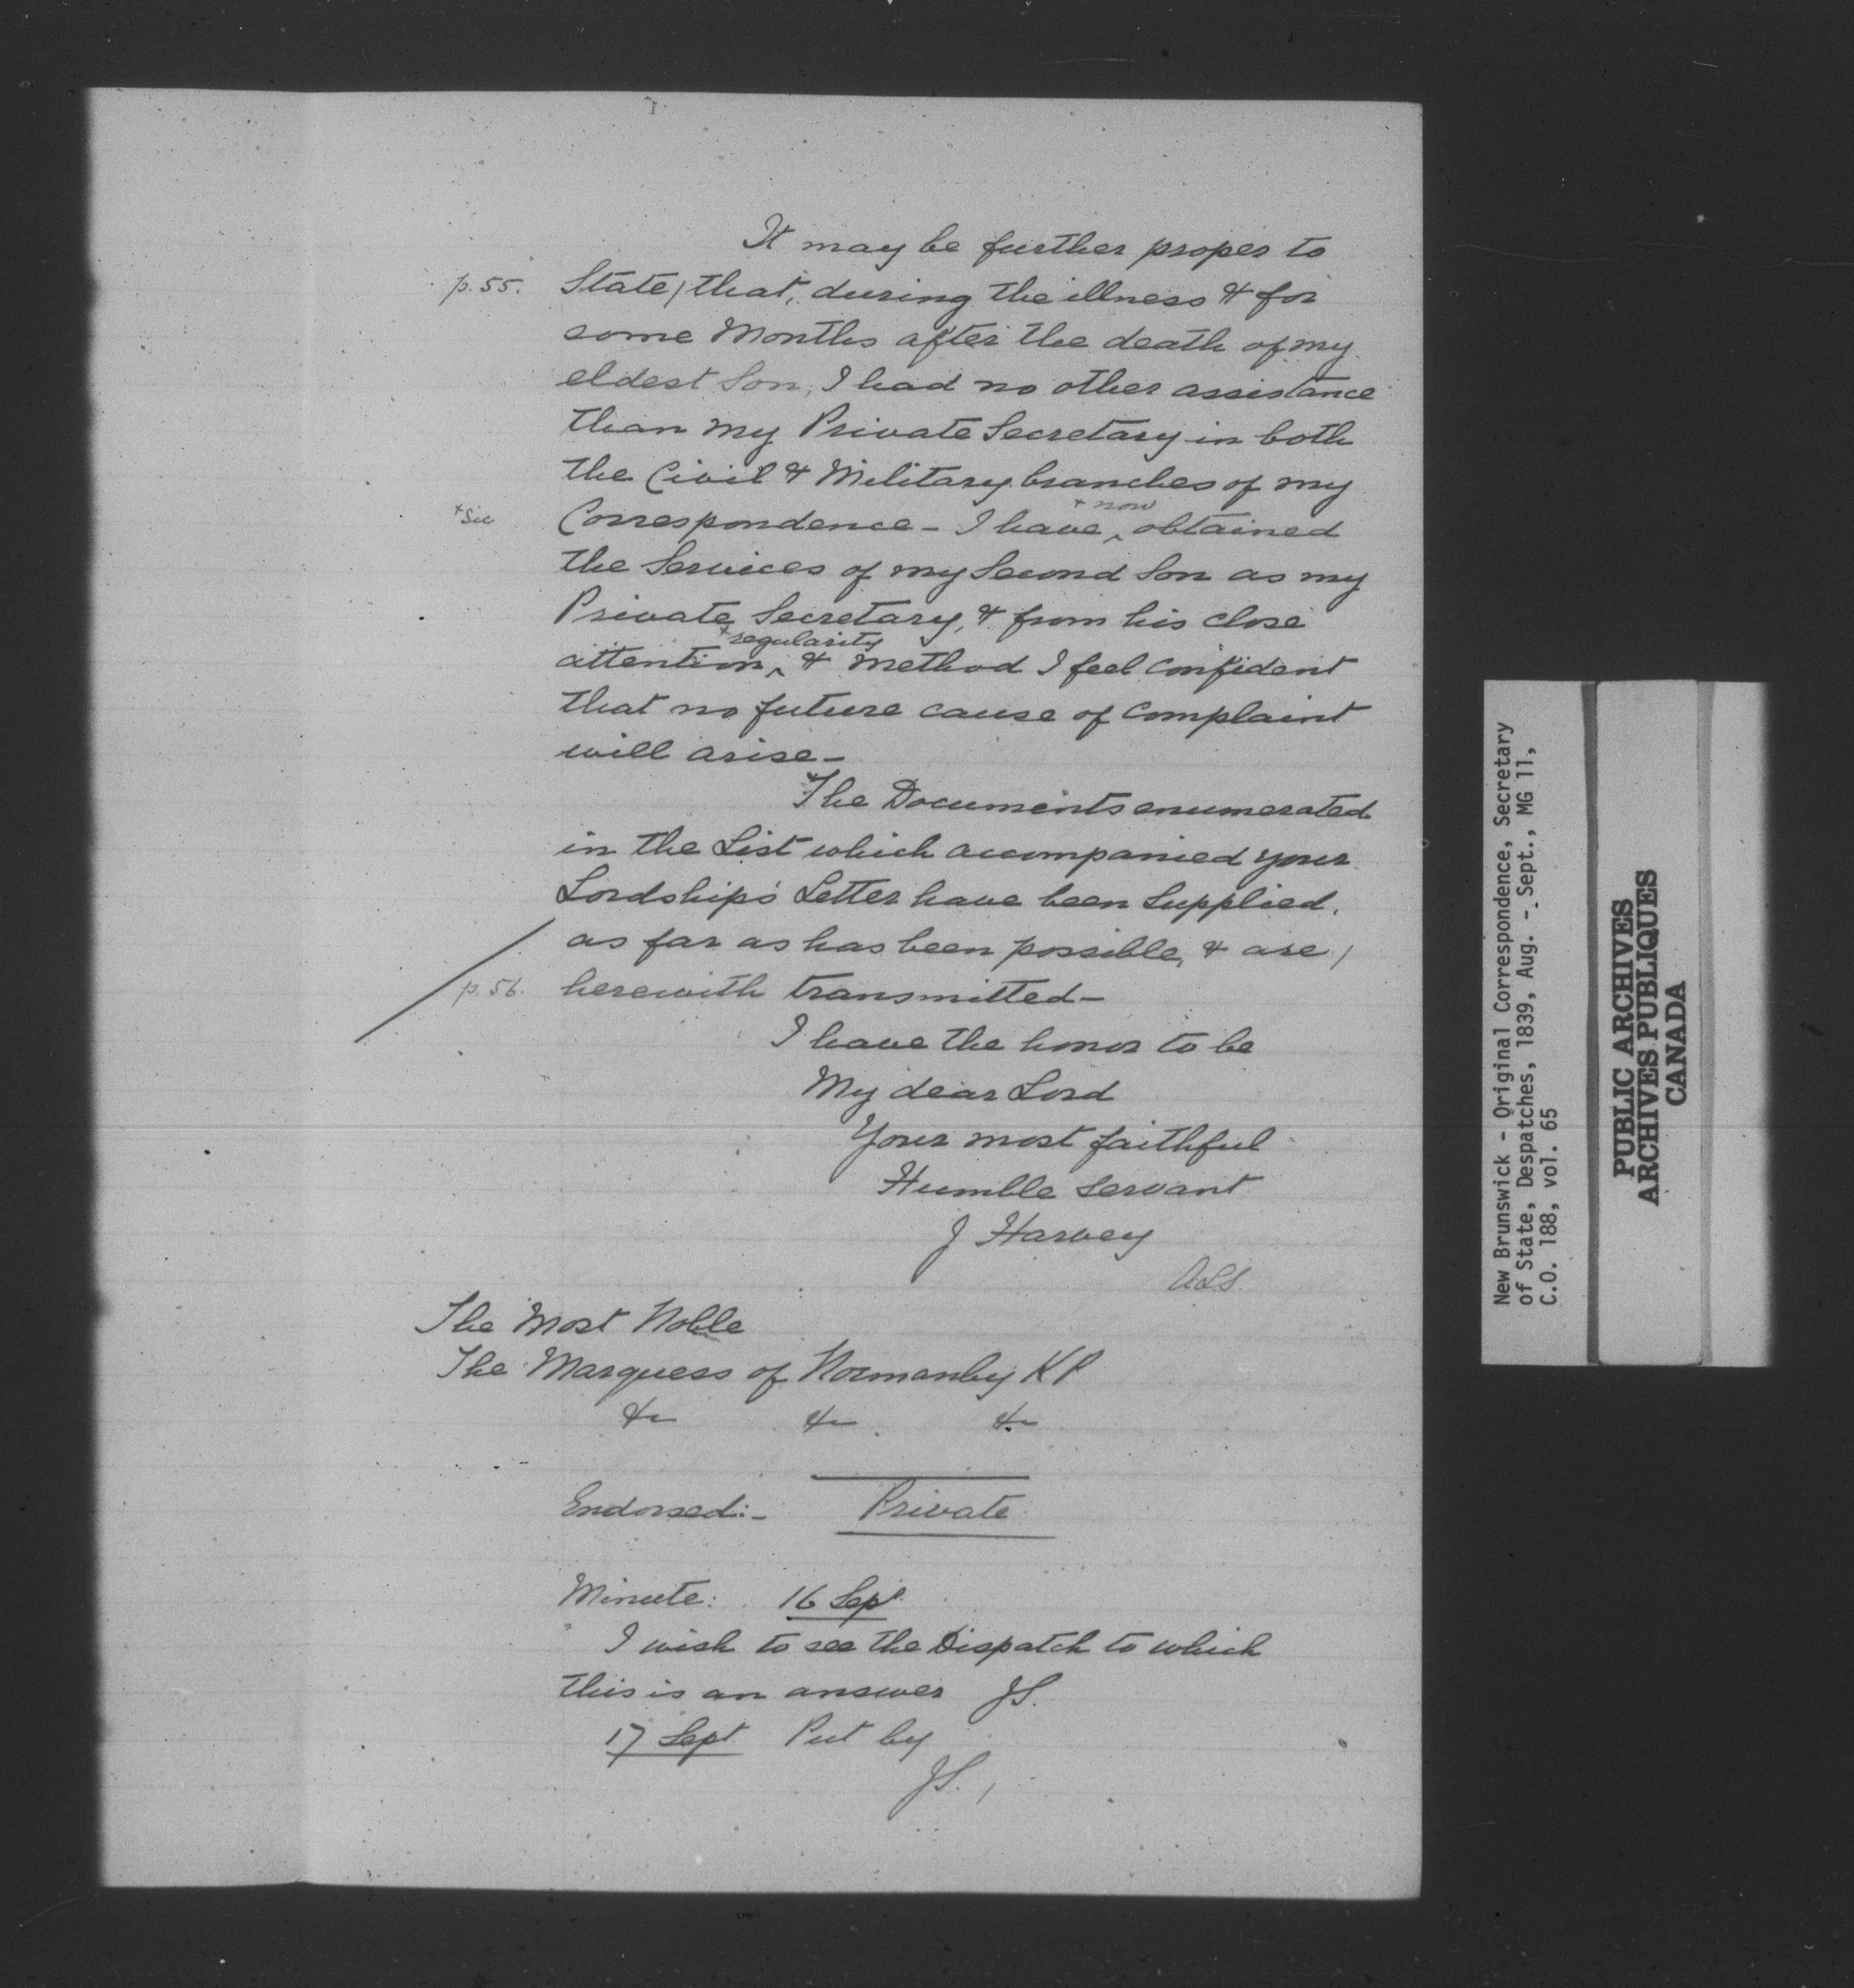 It may be further proper to
p.55. State, / that, during the illness & for
some Months after the death of my
eldest Son, I had no other assistance
than my Private Secretary in both
the Civil & Military branches of my
+ now
+ Sic Correspondence – I have ‸ obtained
the Services of my Second Son as my
Private Secretary, & from his close
+ regularity
attention, ‸ & method I feel confident
that no future cause of complaint
will arise –
The Documents enumerated
in the List which accompanied your
Lordship's Letter have been supplied,
as far as has been possible, & are /
p.56. herewith transmitted –
I have the honor to be
My dear Lord
Your most faithful
Humble servant
J Harvey
A.L.S.
The Most Noble
The Marquess of Normanby KP
&c &c &c
Endorsed:– Private
Minute: 16 Sept
I wish to see the Dispatch to which
this is an answer JS.
17 Sept Put by
JS. /
New Brunswick - Original Correspondence, Secretary
of State, Despatches, 1839, Aug. - Sept., MG 11,
C.O. 188, vol. 65
PUBLIC ARCHIVES
ARCHIVES PUBLIQUES
CANADA